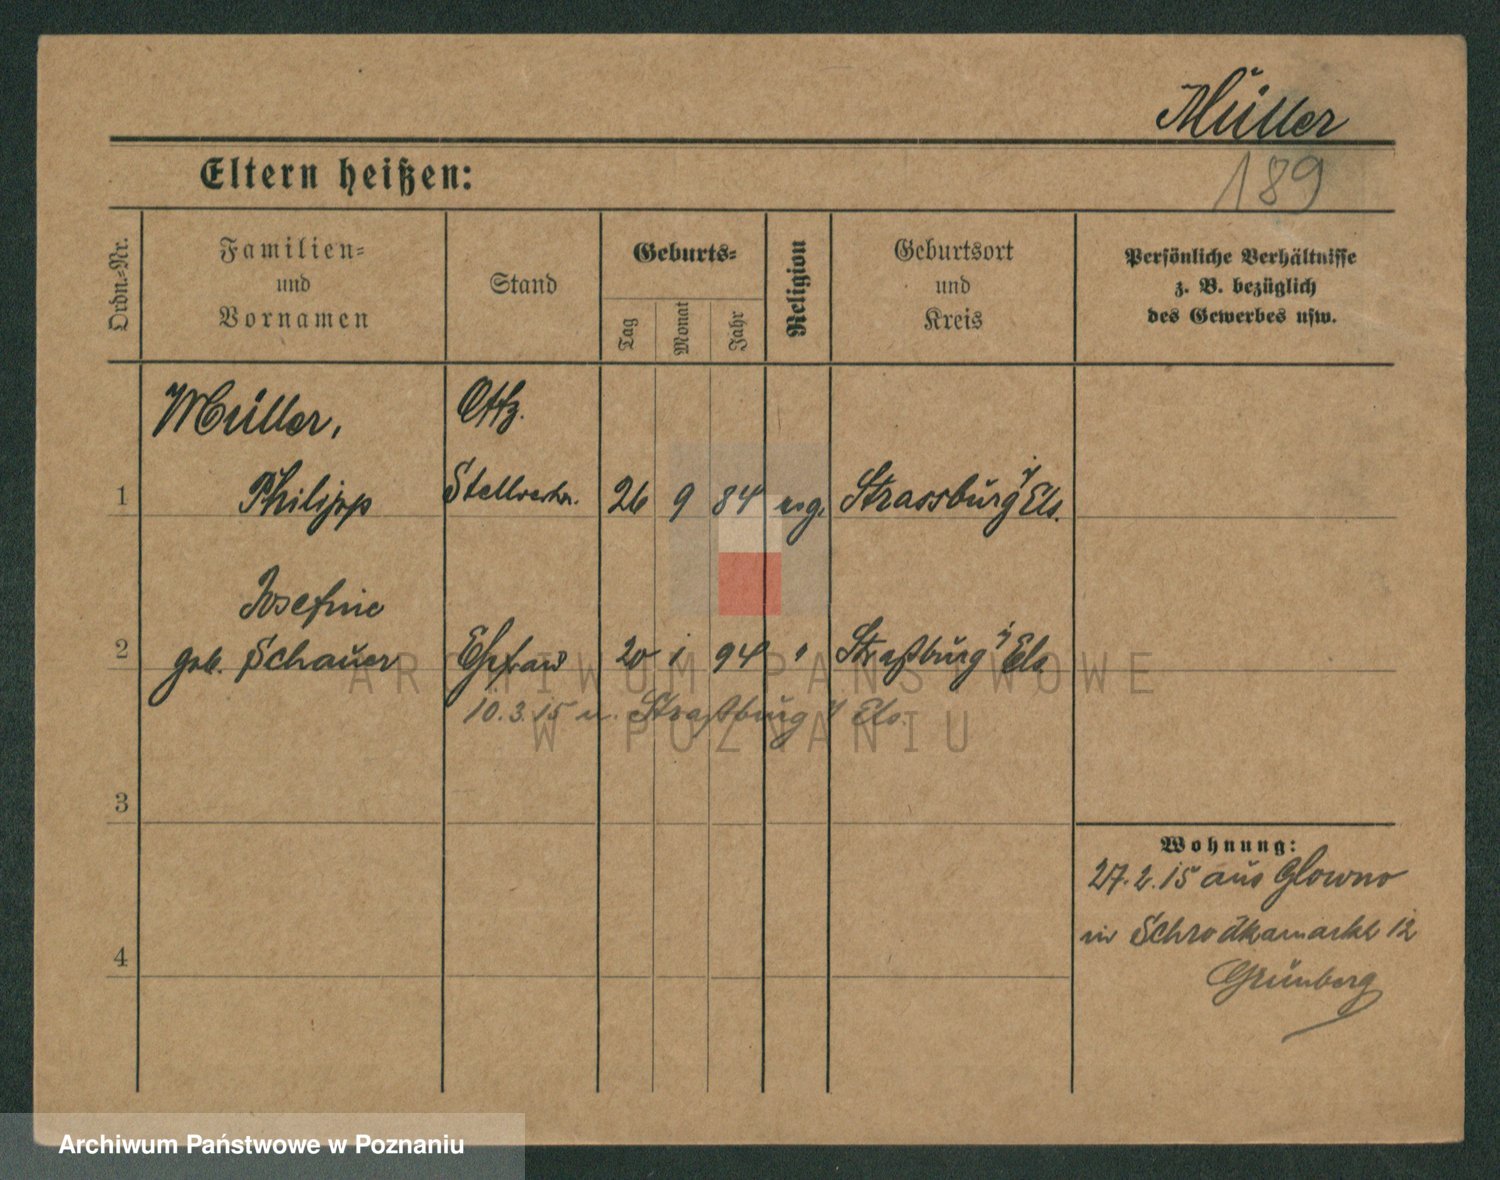 Müller
189
Eltern heißen:
Ordn.-Nr.
Familien-
und
Vornamen
Stand
Geburts-
Tag
Monat
Jahr
Religion
Geburtsort
und
Kreis
Persönliche Verhältnisse
z. B. bezüglich
des Gewerbes usw.
Müller,
1 Philipp 26 9 84 evg. Strassburg i/Els.
Josefine
2 geb. Schauer Ehefrau 20 1 94 " Straßburg i/Els
10.3.15 n. Straßburg i/ Els.
3
Wohnung:
27.2.15 aus Glowno
in Schrodkamarkt 12
4
Grünberg
ARCHIWUM PAŃSTWOWE
W POZNANIU
Archiwum Państwowe w Poznaniu